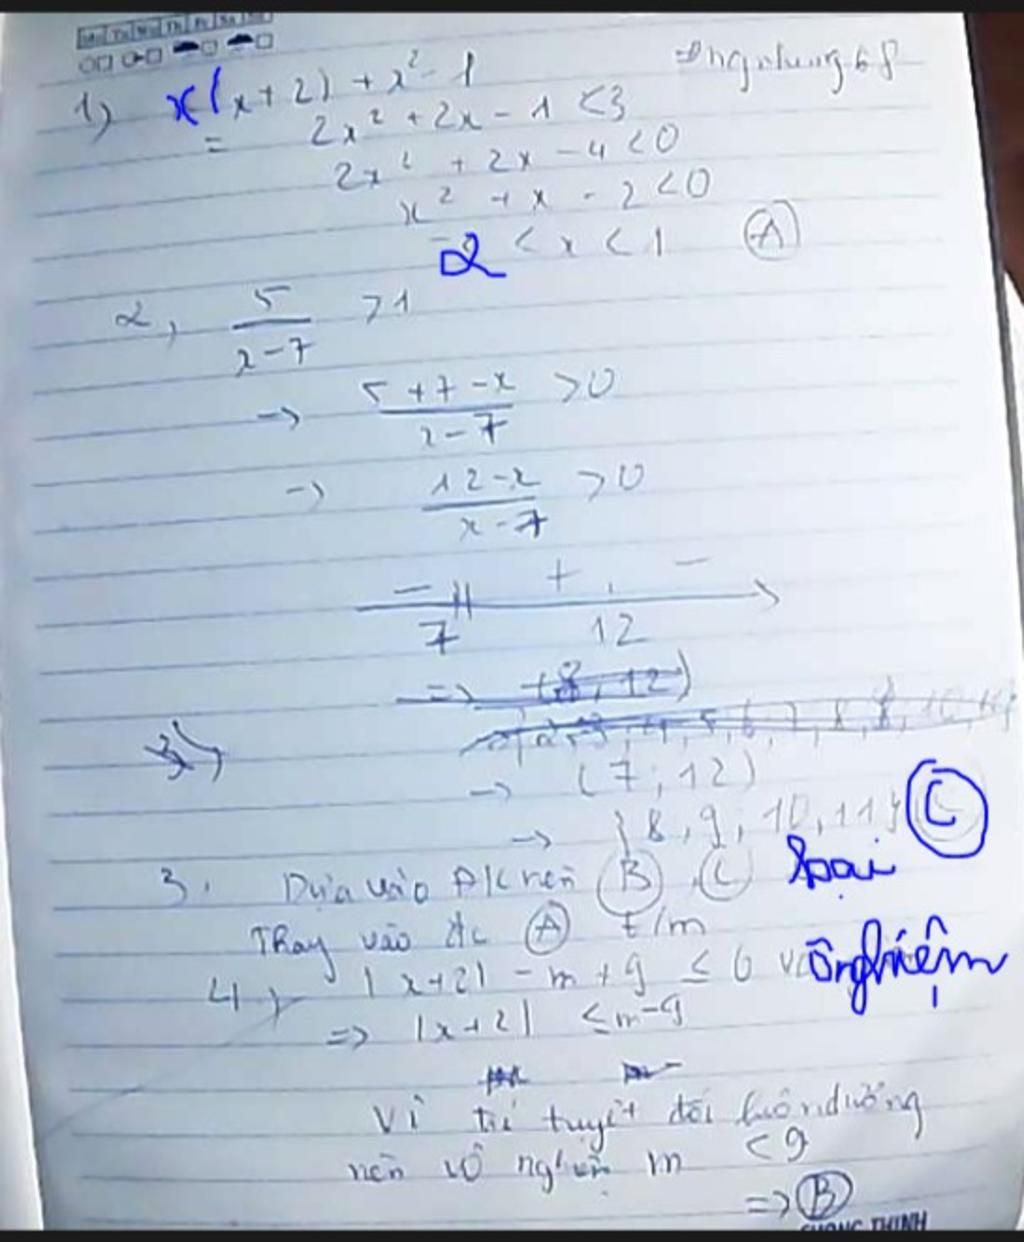 Mo Tu We Th Fr Sa Su
1) x(x+2) + x² - 1
= 2x² + 2x - 1 < 3
2x² + 2x - 4 < 0
x² + x - 2 < 0
-2 < x < 1 (A)
2, 5/(x-7) > 1
→ (5+7-x)/(x-7) > 0
→ (12-x)/(x-7) > 0
- || + -
7 12
=> (8, 12)
3),
→ (7; 12)
→ {8, 9; 10, 11} (C)
3. Dựa vào ĐK nên (B), (C) loại
Thay vào đc (A) t/m
4) |x+2| - m + 9 ≤ 0 vô nghiệm
=> |x+2| ≤ m-9
Vì trị tuyệt đối luôn dương
nên vô nghiệm m < 9
=> (B)